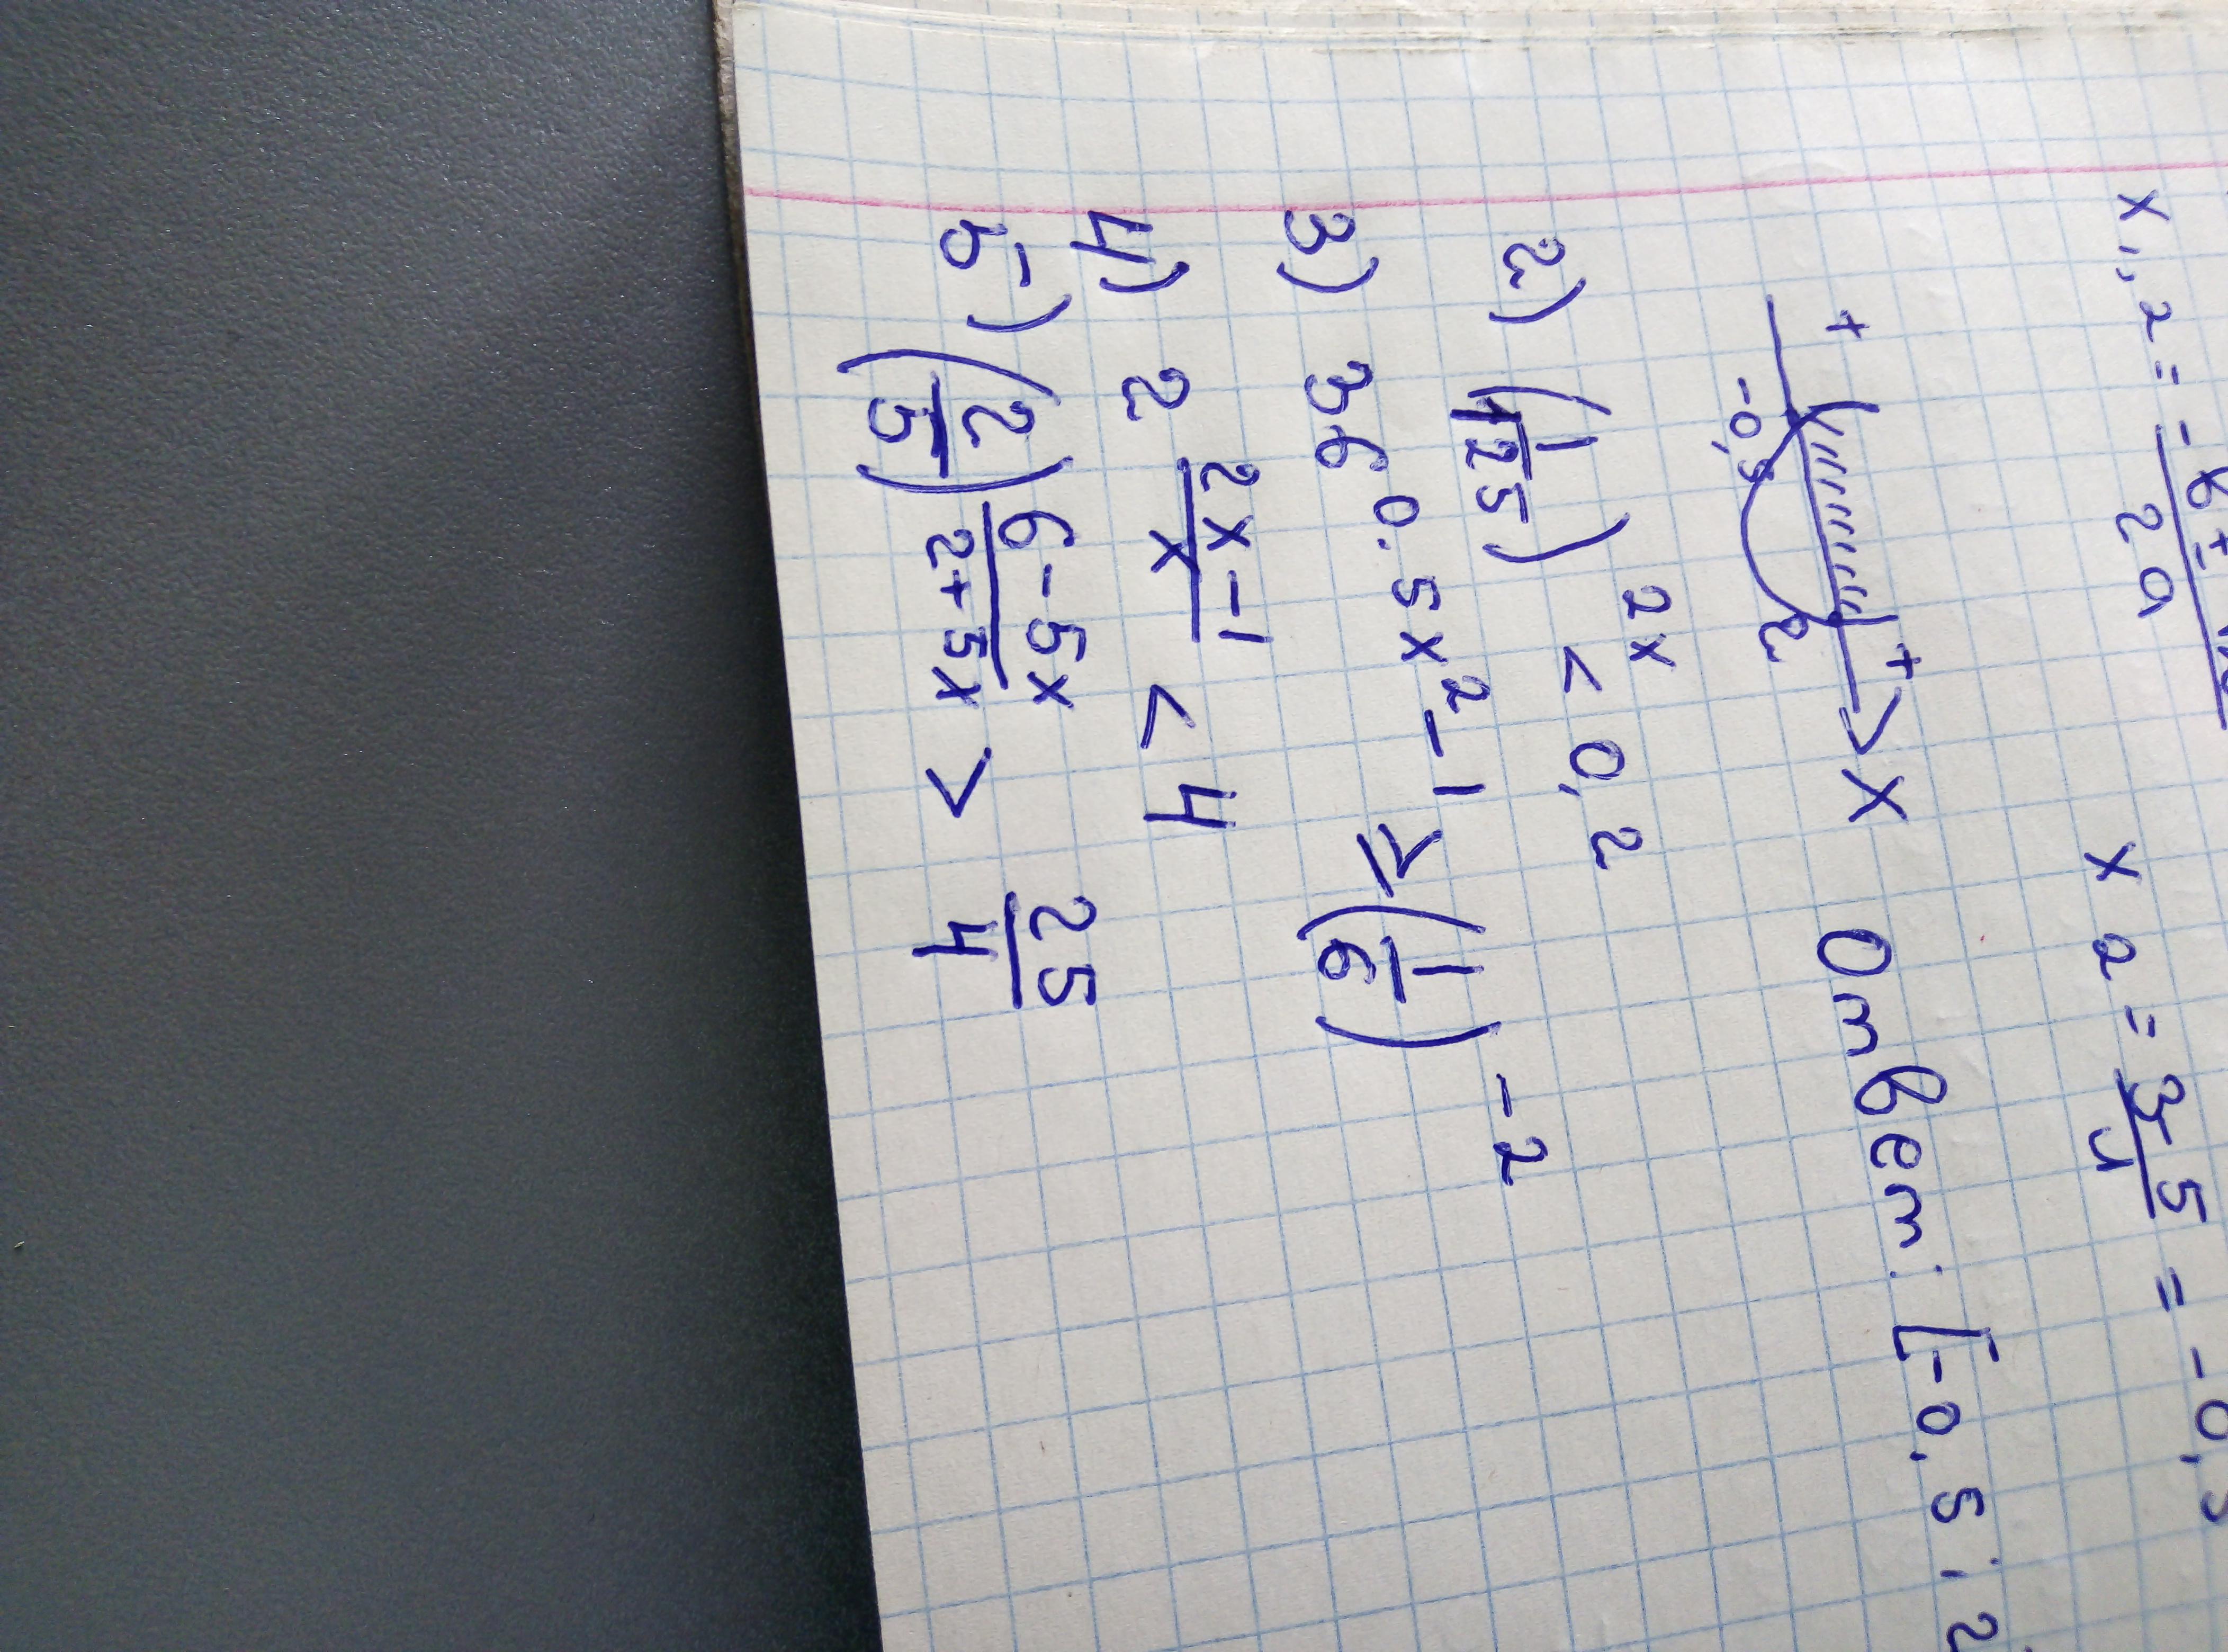 x₁,₂ = (-b ±)/(2a) x₂ = (3-5)/4 = -0,5
+ + -0,5 2 x Ответ: [-0,5; 2
2) (1/125)^(2x) < 0,2
3) 36^(0.5x²-1) ≥ (1/6)^(-2)
4) 2^((2x-1)/x) < 4
5) (2/5)^((6-5x)/(2+5x)) > 25/4